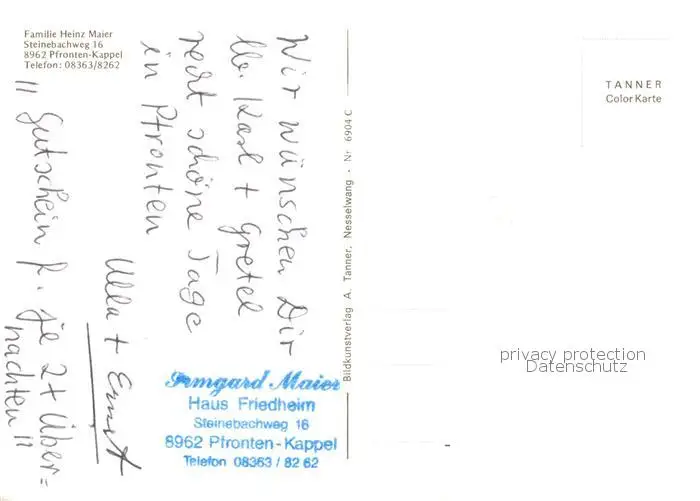 Familie Heinz Maier
Steinebachweg 16
8962 Pfronten-Kappel
Telefon: 08363/8262
Wir wünschen Dir
lb. Karl + Gretel
recht schöne Tage
in Pfronten
Ulla + Ernst
" Gutschein f. je 2 + Über=
nachten "
Irmgard Maier
Haus Friedheim
Steinebachweg 16
8962 Pfronten-Kappel
Telefon 08363 / 82 62
Bildkunstverlag A. Tanner, Nesselwang - Nr 6904 C
TANNER
Color Karte
privacy protection
Datenschutz